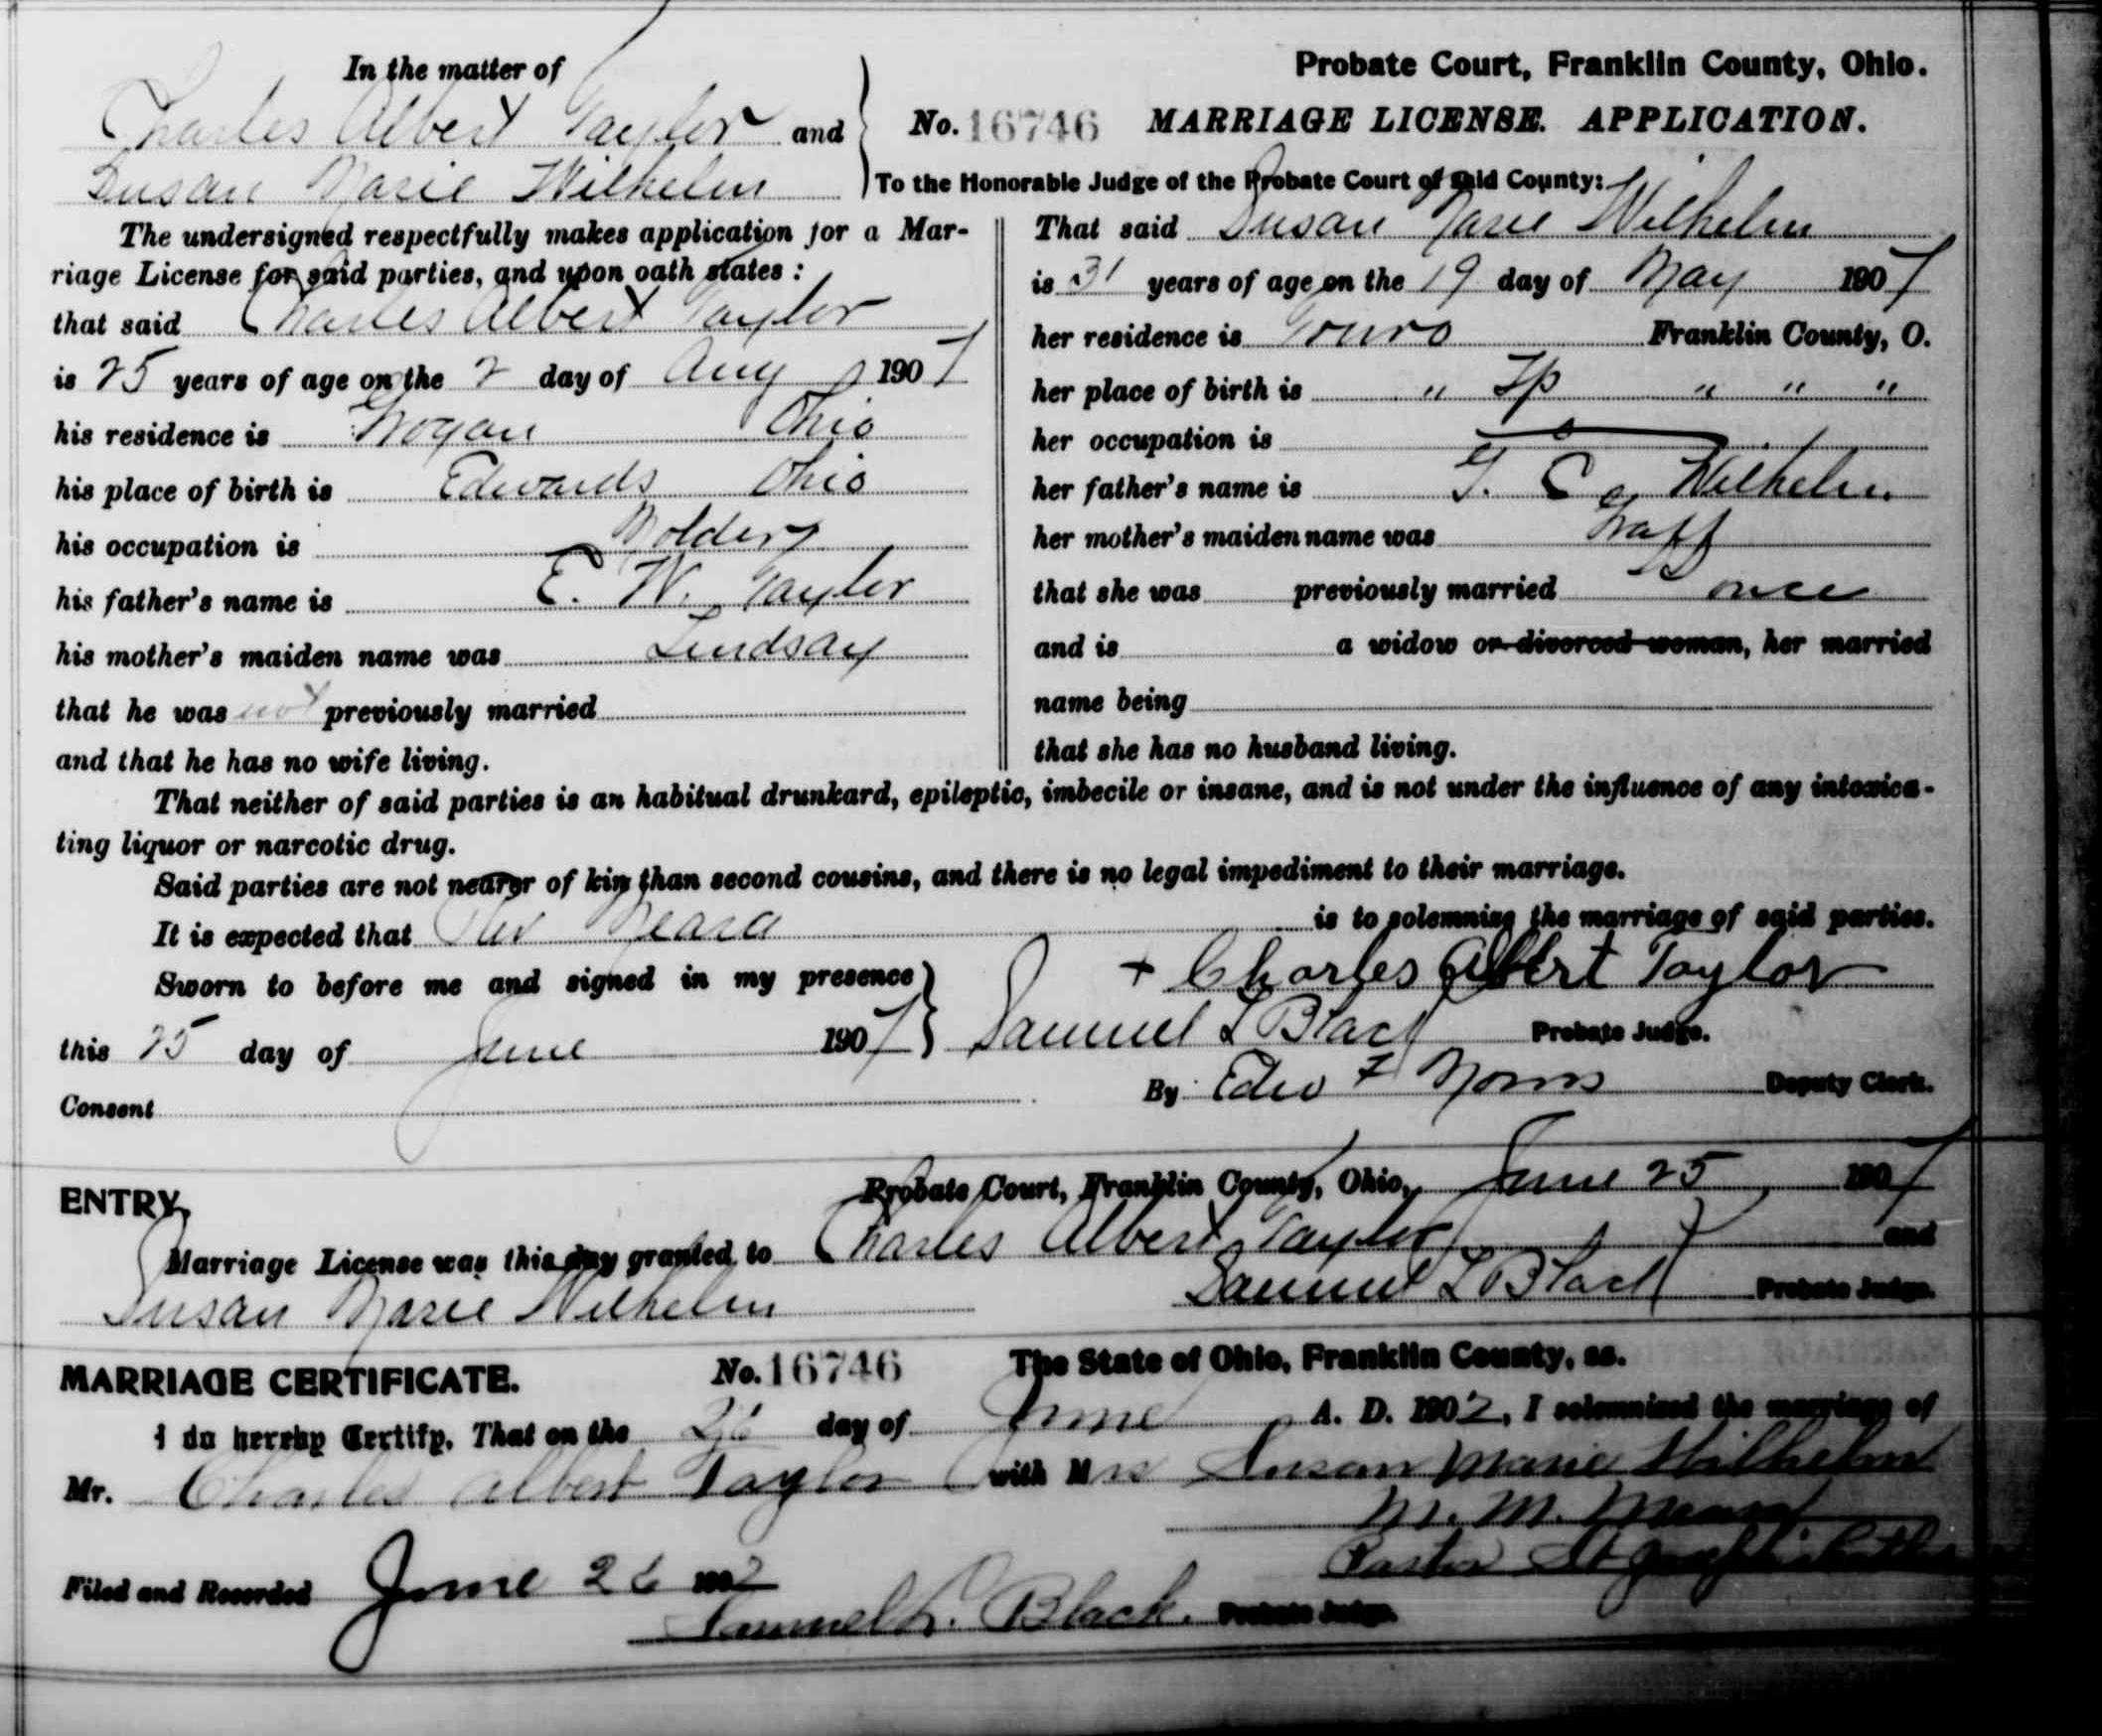 In the matter of
Charles Albert Taylor and
Susan Marie Wilhelm
Probate Court, Franklin County, Ohio.
No. 16746 MARRIAGE LICENSE. APPLICATION.
To the Honorable Judge of the Probate Court of said County:
The undersigned respectfully makes application for a Mar-
riage License for said parties, and upon oath states:
that said Charles Albert Taylor
is 25 years of age on the 2 day of Aug 1907
his residence is Ohio
his place of birth is Edwards Ohio
his occupation is Molder
his father's name is E. W. Taylor
his mother's maiden name was Lindsay
that he was not previously married
and that he has no wife living.
That said Susan Marie Wilhelm
is 31 years of age on the 19 day of May 1907
her residence is Truro Franklin County, O.
her place of birth is " Tp " " "
her occupation is
her father's name is Wilhelm
her mother's maiden name was
that she was previously married once
and is a widow or divorced woman, her married
name being
that she has no husband living.
That neither of said parties is an habitual drunkard, epileptic, imbecile or insane, and is not under the influence of any intoxica-
ting liquor or narcotic drug.
Said parties are not nearer of kin than second cousins, and there is no legal impediment to their marriage.
It is expected that is to solemnize the marriage of said parties.
Sworn to before me and signed in my presence
+ Charles Albert Taylor
this 25 day of June 1907 Samuel L Black Probate Judge.
By Edw F Morris Deputy Clerk.
Consent
Probate Court, Franklin County, Ohio, June 25, 1907
ENTRY.
Marriage License was this day granted to Charles Albert Taylor and
Susan Marie Wilhelm Samuel L Black Probate Judge.
MARRIAGE CERTIFICATE. No. 16746 The State of Ohio, Franklin County, ss.
I do hereby Certify, That on the 26 day of June A. D. 1907, I solemnized the marriage of
Mr. Charles Albert Taylor with Mrs Susan Marie Wilhelm
M. M.
Pastor St
Filed and Recorded June 26 1907
Samuel L. Black. Probate Judge.